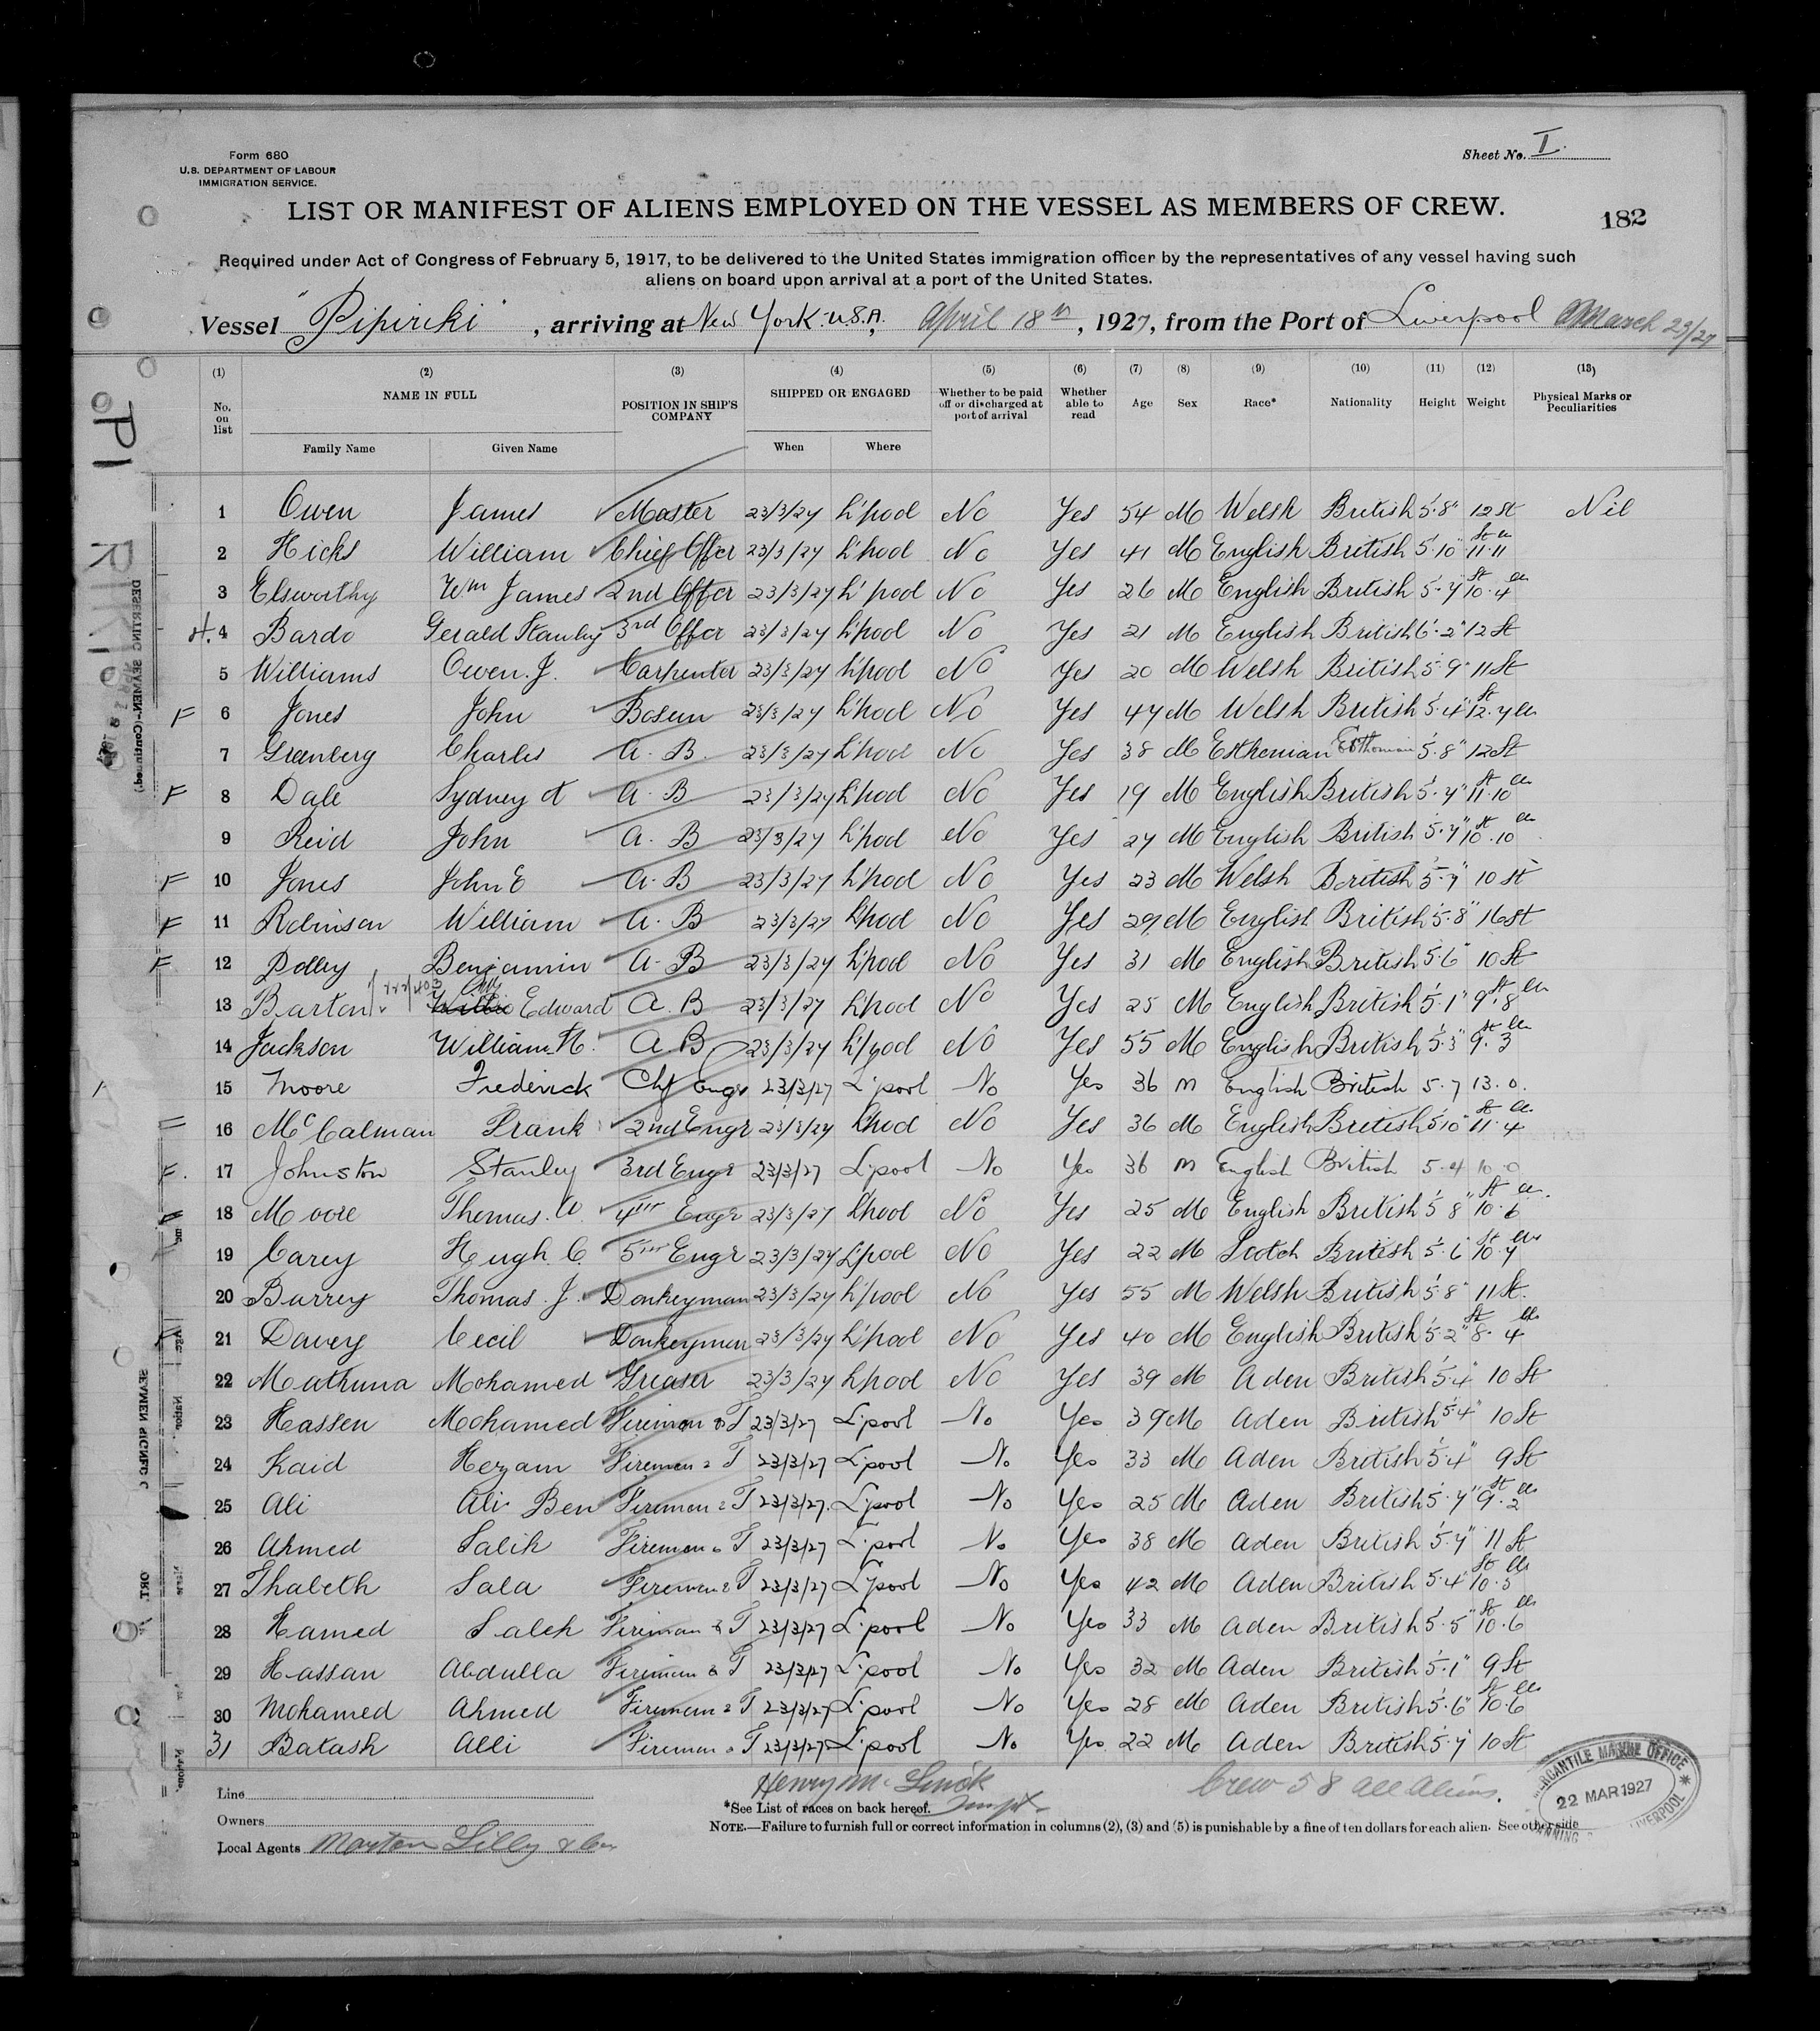 Form 680
U.S. DEPARTMENT OF LABOUR
IMMIGRATION SERVICE.
Sheet No. I.
LIST OR MANIFEST OF ALIENS EMPLOYED ON THE VESSEL AS MEMBERS OF CREW.
182
Required under Act of Congress of February 5, 1917, to be delivered to the United States immigration officer by the representatives of any vessel having such
aliens on board upon arrival at a port of the United States.
Vessel "Pipiriki", arriving at New York. U.S.A., April 18th, 1927, from the Port of Liverpool March 23/27
(1) (2) (3) (4) (5) (6) (7) (8) (9) (10) (11) (12) (13)
No. on list NAME IN FULL POSITION IN SHIP'S COMPANY SHIPPED OR ENGAGED Whether to be paid off or discharged at port of arrival Whether able to read Age Sex Race* Nationality Height Weight Physical Marks or Peculiarities
Family Name Given Name When Where
1 Owen James Master 23/3/27 L'pool No Yes 54 M Welsh British 5'.8" 12 St Nil
2 Hicks William Chief Offcr 23/3/27 L'pool No Yes 41 M English British 5'.10" 11.11
3 Elsworthy Wm James 2nd Offcr 23/3/27 L'pool No Yes 26 M English British 5'.7" 10.4
4 Bardo Gerald Stanley 3rd Offcr 23/3/27 L'pool No Yes 21 M English British 6'.2" 12 St
5 Williams Owen. J. Carpenter 23/3/27 L'pool No Yes 20 M Welsh British 5'.9" 11 St
F 6 Jones John Bosun 23/3/27 L'pool No Yes 47 M Welsh British 5'.4" 12.7
7 Greenberg Charles A. B. 23/3/27 L'pool No Yes 38 M Esthonian Esthonian 5'.8" 12 St
F 8 Dale Sydney A A. B 23/3/27 L'pool No Yes 19 M English British 5'.7" 11.10
9 Reid John A. B 23/3/27 L'pool No Yes 27 M English British 5'.7" 10.10
F 10 Jones John E A. B 23/3/27 L'pool No Yes 23 M Welsh British 5'.7" 10 St
F 11 Robinson William A. B 23/3/27 L'pool No Yes 29 M English British 5'.8" 16 St
F 12 Polley Benjamin A. B 23/3/27 L'pool No Yes 31 M English British 5'.6" 10 St
13 Barton Edward A. B 23/3/27 L'pool No Yes 25 M English British 5'.1" 9.8
14 Jackson William H. A. B 23/3/27 L'pool No Yes 55 M English British 5'.3" 9.3
15 Moore Frederick Chf Engr 23/3/27 L'pool No Yes 36 M English British 5.7 13.0.
16 McCalman Frank 2nd Engr 23/3/27 L'pool No Yes 36 M English British 5'10" 11.4
F. 17 Johnston Stanley 3rd Engr 23/3/27 L'pool No Yes 36 M English British 5.4 10.0
18 Moore Thomas. W 4th Engr 23/3/27 L'pool No Yes 25 M English British 5'.8" 10.6
19 Carey Hugh. C. 5th Engr 23/3/27 L'pool No Yes 22 M Scotch British 5'.6" 10.7
20 Barrey Thomas. J. Donkeyman 23/3/27 L'pool No Yes 55 M Welsh British 5'.8" 11 St.
21 Davey Cecil Donkeyman 23/3/27 L'pool No Yes 40 M English British 5'.2" 8.4
22 Mathuna Mohamed Greaser 23/3/27 L'pool No Yes 39 M Aden British 5'.4" 10 St
23 Hassen Mohamed Fireman & T 23/3/27 L'pool No Yes 39 M Aden British 5'.4" 10 St
24 Kaid Hezam Fireman & T 23/3/27 L'pool No Yes 33 M Aden British 5'.4" 9 St
25 Ali Ali Ben Fireman & T 23/3/27. L'pool No Yes 25 M Aden British 5'.7" 9.2
26 Ahmed Salih Fireman & T 23/3/27 L'pool No Yes 38 M Aden British 5'.7" 11 St
27 Thabeth Sala Fireman & T 23/3/27 L'pool No Yes 42 M Aden British 5'.4" 10.5
28 Hamed Saleh Fireman & T 23/3/27 L'pool No Yes 33 M Aden British 5'.5" 10.6
29 Hassan Abdulla Fireman & T 23/3/27 L'pool No Yes 32 M Aden British 5'.1" 9 St
30 Mohamed Ahmed Fireman & T 23/3/27 L'pool No Yes 28 M Aden British 5'.6" 10.6
31 Batash Alli Fireman & T 23/3/27 L'pool No Yes 22 M Aden British 5'.7" 10 St
Line
Owners
Local Agents Norton Lilly & Co
*See List of races on back hereof.
Crew 58 all Aliens.
NOTE.—Failure to furnish full or correct information in columns (2), (3) and (5) is punishable by a fine of ten dollars for each alien. See other side
MERCANTILE MARINE OFFICE
22 MAR 1927
LIVERPOOL